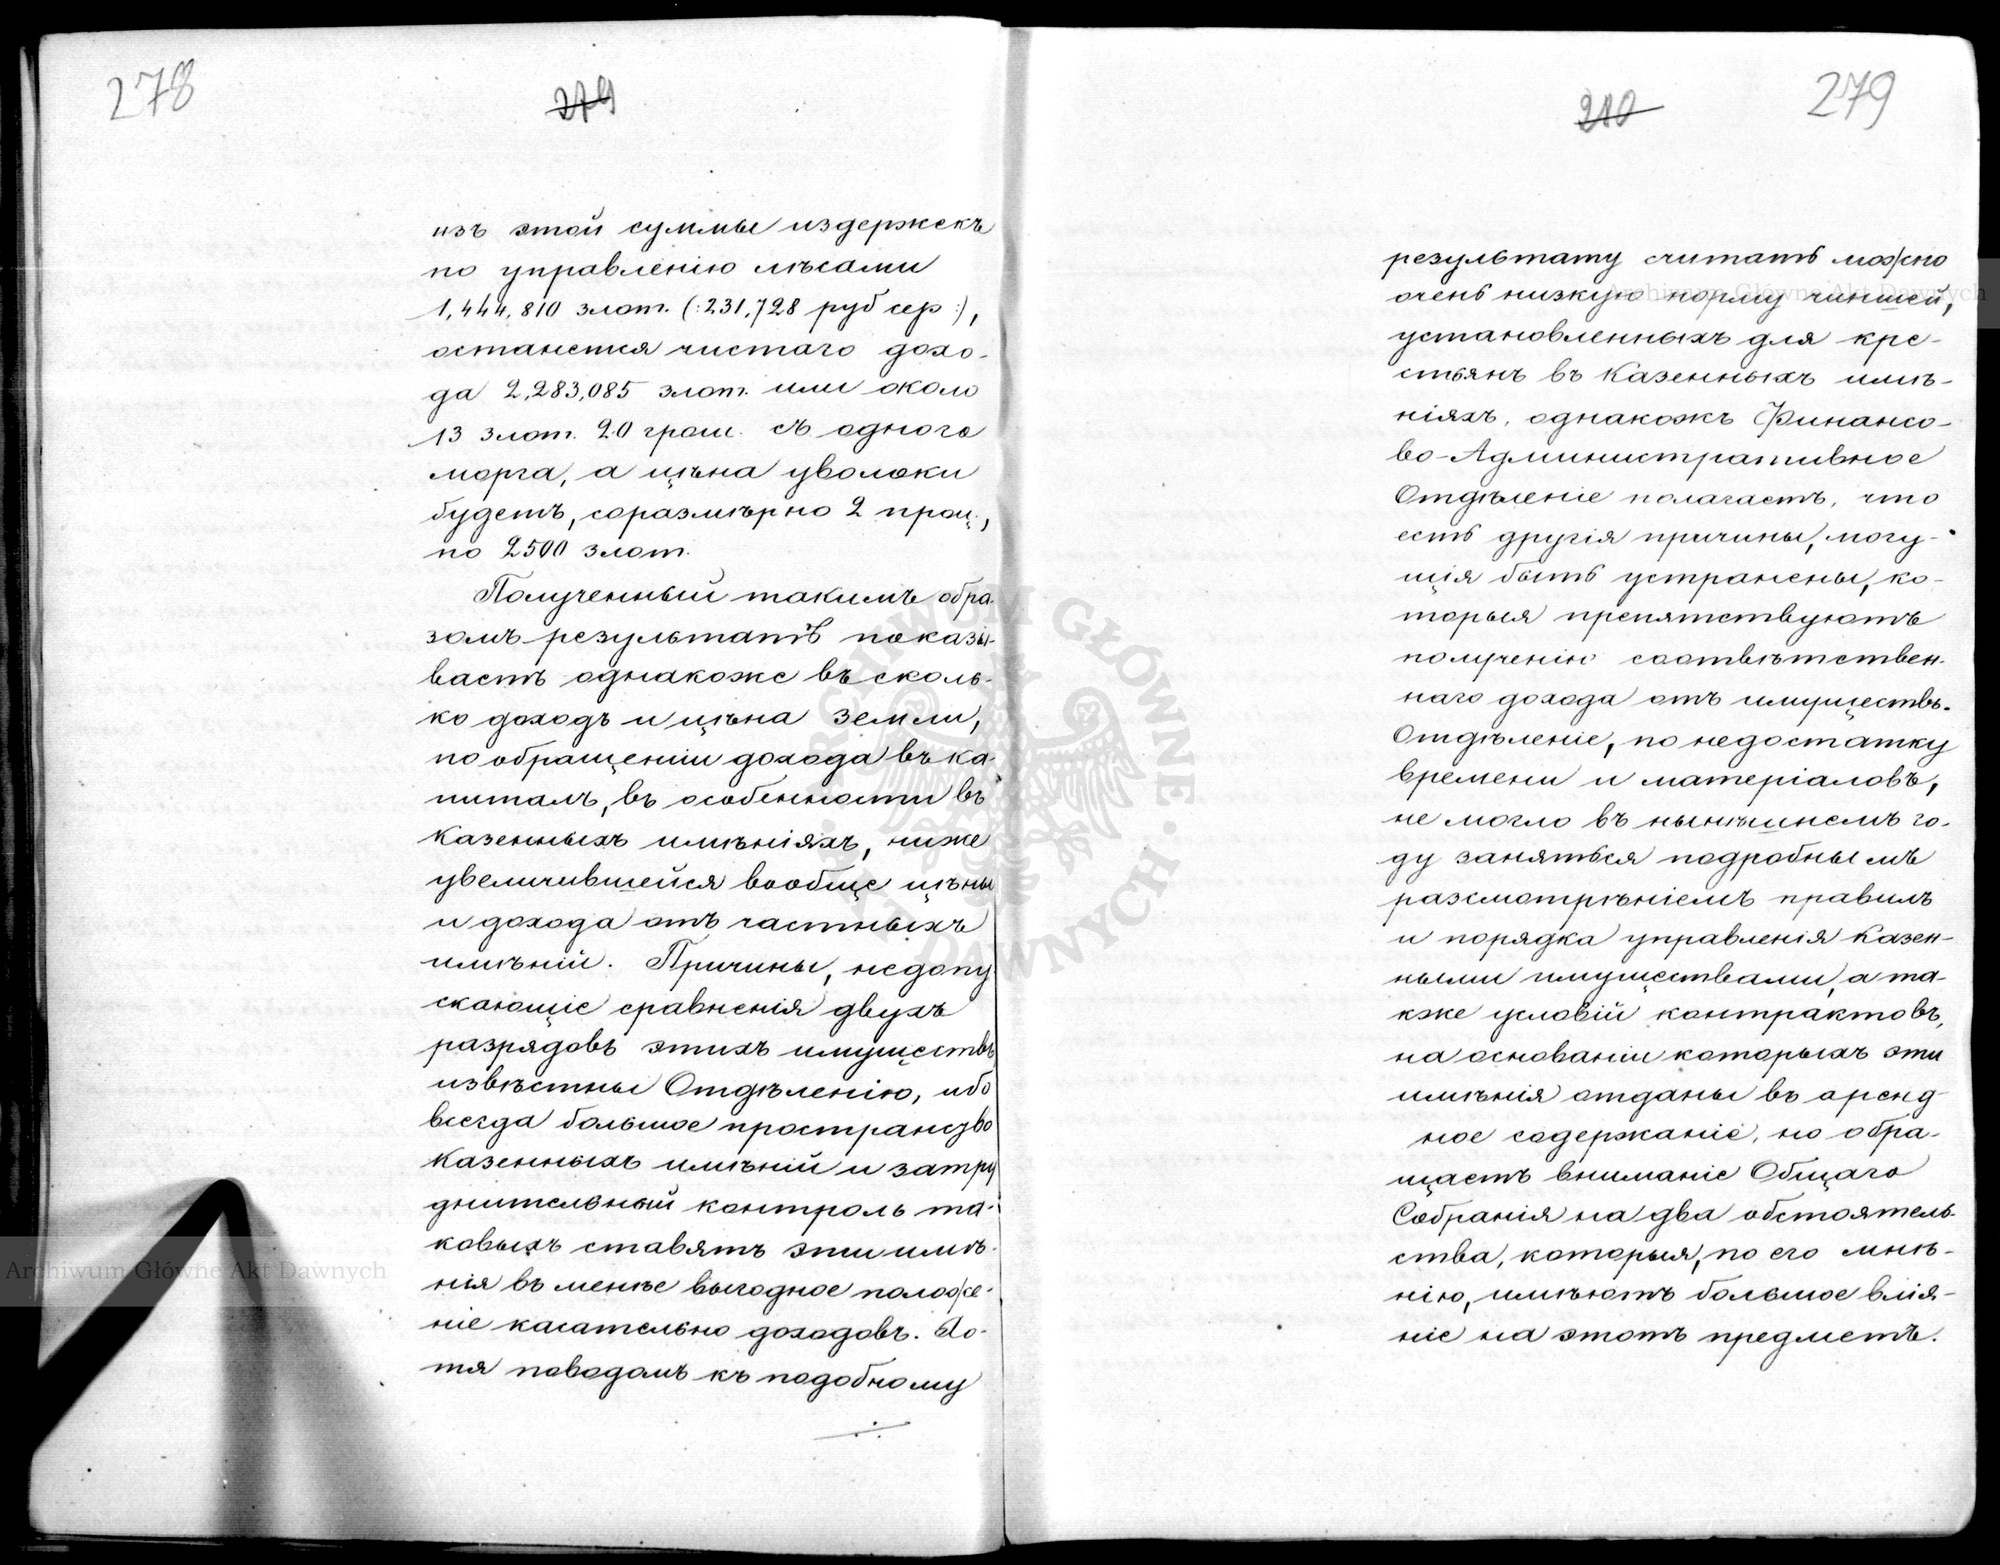 278
279
изъ этой суммы издержекъ
по управленію лѣсами
1,444,810 злот. (:231,728 руб сер:),
останется чистаго дохо-
да 2,283,085 злот. или около
13 злот. 20 грош. съ одного
морга, а цѣна уволоки
будетъ, соразмѣрно 2 проц.,
по 2500 злот.
Полученный такимъ обра-
зомъ результатъ показы-
ваетъ однакоже въ сколь-
ко доходъ и цѣна земли,
по обращеніи дохода въ ка-
питалъ, въ особенности въ
Казенныхъ имѣніяхъ, ниже
увеличившейся вообще цѣны
и дохода отъ частныхъ
имѣній. Причины, недопу-
скающіе сравненія двухъ
разрядовъ этихъ имуществъ
извѣстны Отдѣленію, ибо
всегда большое пространство
Казенныхъ имѣній и затру
днительный контроль та-
ковыхъ ставятъ эти имѣ-
нія въ менѣе выгодное положе-
ніе касательно доходовъ. Хо-
тя поводомъ къ подобному
279
результату считать можно
очень низкую норму чиншей,
установленныхъ для кре-
стьянъ въ Казенныхъ имѣ-
ніяхъ, однакожъ Финансо-
во-Административное
Отдѣленіе полагаетъ, что
есть другія причины, могу-
щія быть устранены, ко-
торыя препятствуютъ
полученію соотвѣтствен-
наго дохода отъ имуществъ.
Отдѣленіе, по недостатку
времени и матеріаловъ,
не могло въ нынѣшнемъ го-
ду заняться подробнымъ
разсмотрѣніемъ правилъ
и порядка управленія Казен-
ными имуществами, а та-
кже условій контрактовъ,
на основаніи которыхъ эти
имѣнія отданы въ аренд-
ное содержаніе, но обра-
щаетъ вниманіе Общаго
Собранія на два обстоятель-
ства, которыя, по его мнѣ-
нію, имѣютъ большое влія-
ніе на этотъ предметъ.
Archiwum Główne Akt Dawnych
Archiwum Główne Akt Dawnych